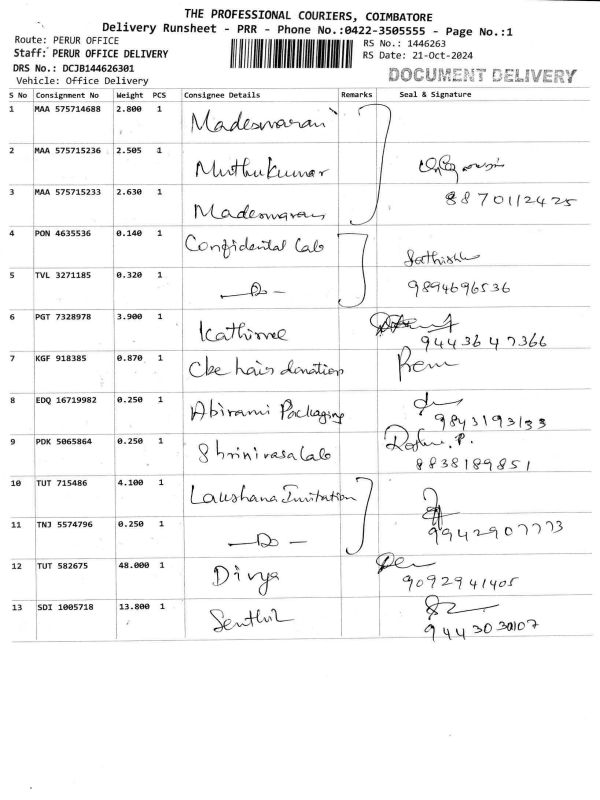 THE PROFESSIONAL COURIERS, COIMBATORE
Delivery Runsheet - PRR - Phone No.:0422-3505555 - Page No.:1
Route: PERUR OFFICE RS No.: 1446263
Staff: PERUR OFFICE DELIVERY RS Date: 21-Oct-2024
DRS No.: DCJB144626301 DOCUMENT DELIVERY
Vehicle: Office Delivery
S No Consignment No Weight PCS Consignee Details Remarks Seal & Signature
1 MAA 575714688 2.800 1 Madeswaran
2 MAA 575715236 2.505 1 Muthukumar
3 MAA 575715233 2.630 1 Madeswaran 8870112425
4 PON 4635536 0.140 1 Confidental Lab Sathish
5 TVL 3271185 0.320 1 —Do— 9894696536
6 PGT 7328978 3.900 1 Kathirvel 9443647366
7 KGF 918385 0.870 1 Cbe hair donation
8 EDQ 16719982 0.250 1 Abirami Packaging 9843193133
9 PDK 5065864 0.250 1 Shrinivasa Lab 8838189851
10 TUT 715486 4.100 1 Invitation
11 TNJ 5574796 0.250 1 —Do— 9942907773
12 TUT 582675 48.000 1 Divya 9092941405
13 SDI 1005718 13.800 1 Senthil